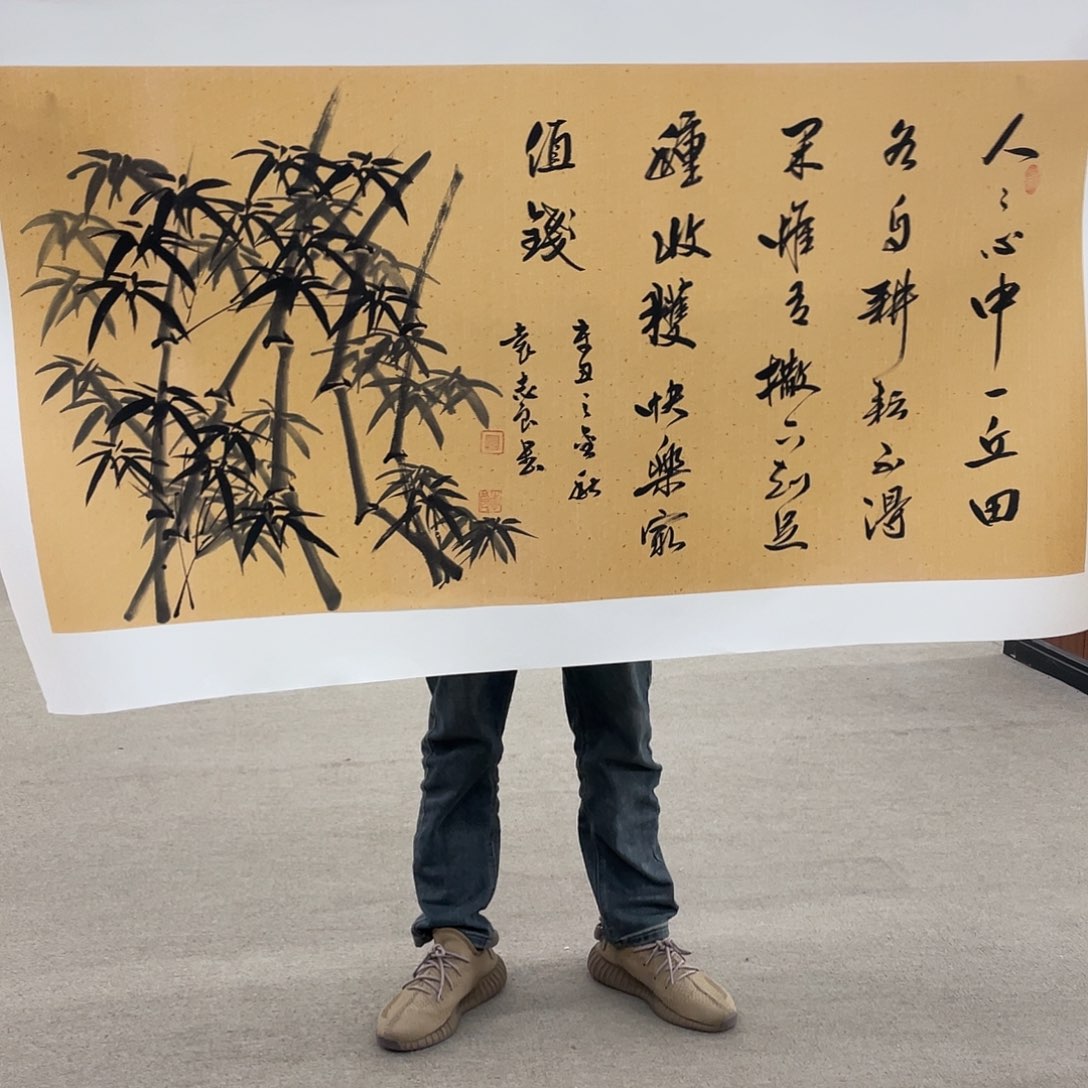 人〻心中一丘田
各自耕耘不得
果惟有撒下知足
種收穫快樂最
值錢
辛丑之金秋
袁志良